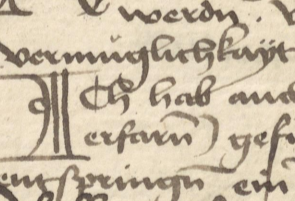 werdn . v
vermuglichkayt
Ich hab and
erfarn gefu
entspringn ein